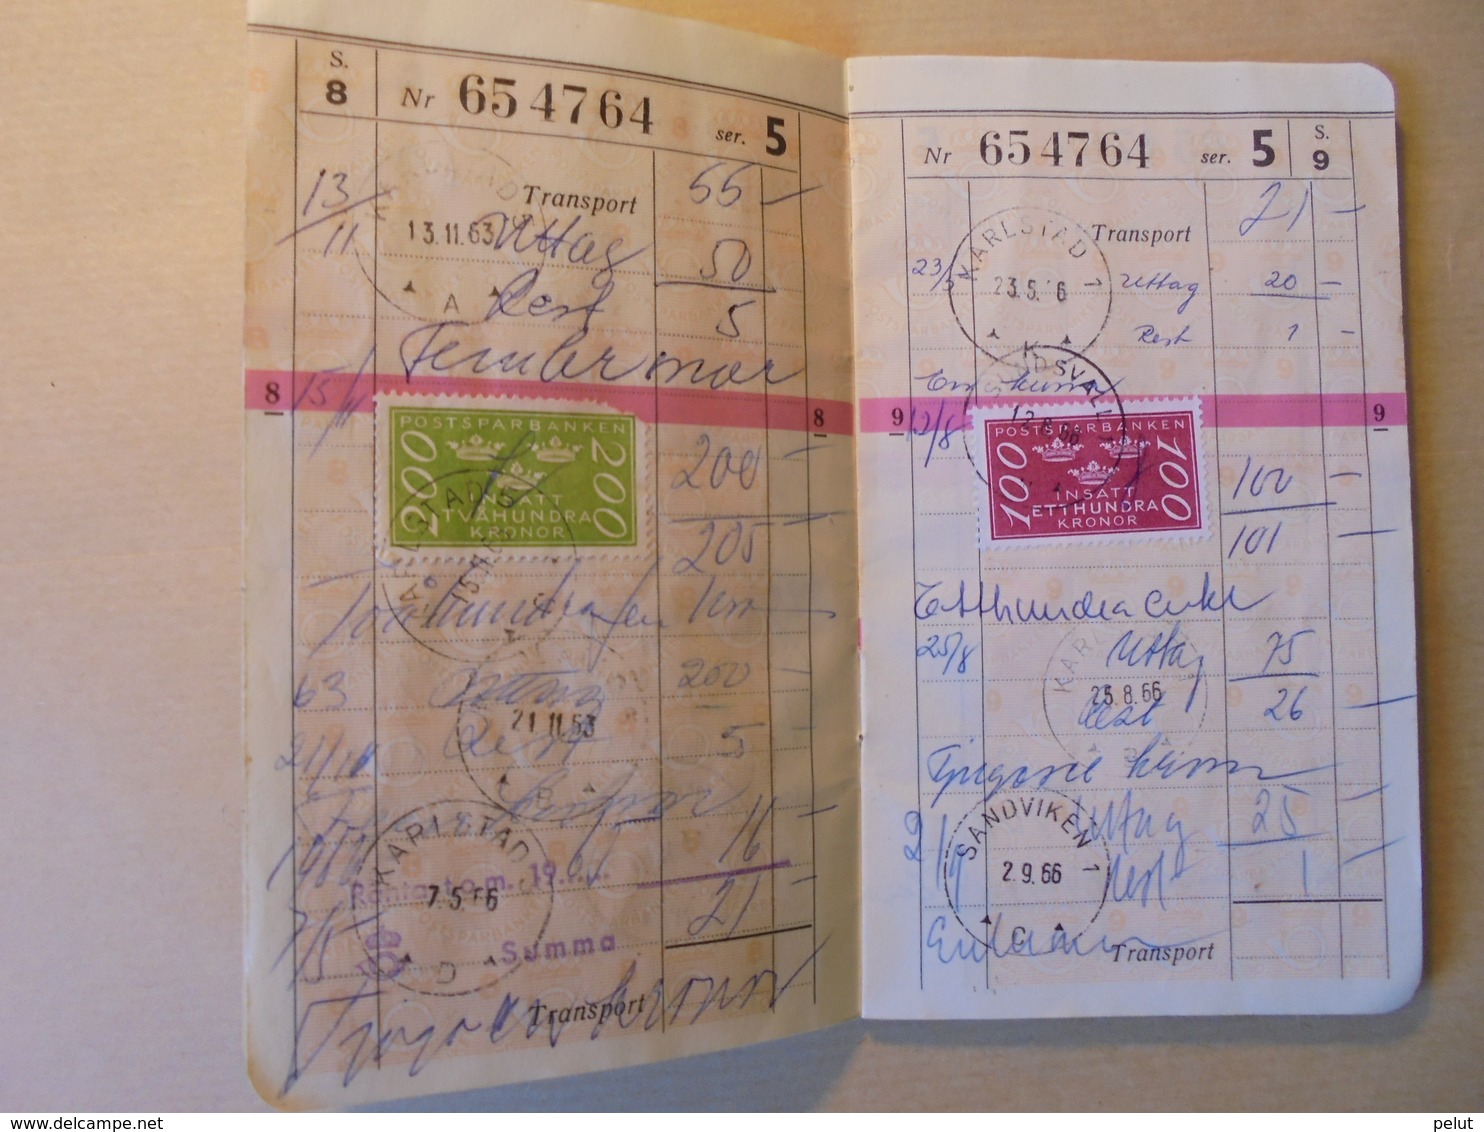 S.
8
Nr 654764 ser. 5
Transport 55 –
13/11
13.11.63
Uttag 50
A
Rest 5
Fem kronor
8 15/11 8
POSTSPARBANKEN
200 200
INSATT
TVÅHUNDRA
KRONOR
200 –
205 –
63 200 –
21.11.63
21/11 Rest 5 –
B
16 –
KARLSTAD
Ränta t.o.m. 19
7/5 7.5.66
21 –
Summa
D
Transport
Nr 654764 ser. 5 S.
9
Transport 21 –
KARLSTAD 1
23/5 23.5. 6 Uttag 20 –
K
Rest 1 –
En krona
9 12/8 9
SUNDSVALL 1
12.8.66
POSTSPARBANKEN
100 100
INSATT
ETTHUNDRA
KRONOR
100 –
101 –
Etthundraen kr
25/8 Uttag 75 –
25.8.66
Rest 26 –
B
Tjugosex kronor
2/9 Uttag 25 –
SANDVIKEN 1
2.9.66
Rest 1 –
C
En krona
Transport
pelut